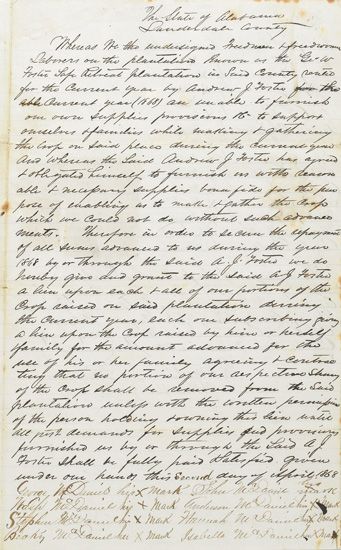 The State of Alabama
Lauderdale County
Whereas We the undersigned Freedmen & freedwomen
Laborers on the plantation Known as the Geo W
Foster Sr plantation in Said County rented
for the Current year by Andrew J Foster for the
Current year (1868) are unable to furnish
our own Supplies provisions &c to support
ourselves & families while making & gathering
the Crop on said place during the Current year
And Whereas the Said Andrew J Foster has agreed
& obligated himself to furnish us with reason
able & necessary supplies bonafide for the pur
pose of enabling us to make & gather the Crop
which we Could not do without such advance
ments. Therefor in order to secure the repayment
of all sums advanced to us during the year
1868 by or through the said A. J. Foster we do
hereby give and grant to the said A J Foster
a lien upon each & all of our portions of the
Crop raised on said plantation during
the Current year, each one subscribing giving
a lien upon the Crop raised by him or herself
& family for the amount advanced for the
use of his or her family agreeing & contrac
ting that no portion of our respective shares
of the Crop shall be removed from the Said
plantation unless with the written permission
of the person holding & owning this lien until
all just demands for supplies and provisions
furnished us by or through the Said A J
Foster shall be fully paid & satisfied given
under our hands this Second day of April 1868
George McDaniel his X Mark John McDaniel his X mark
McDaniel his X Mark Anderson McDaniel his X Mark
Stephen McDaniel his X Mark Hannah McDaniel her X Mark
McDaniel her X Mark Isabella McDaniel her X Mark